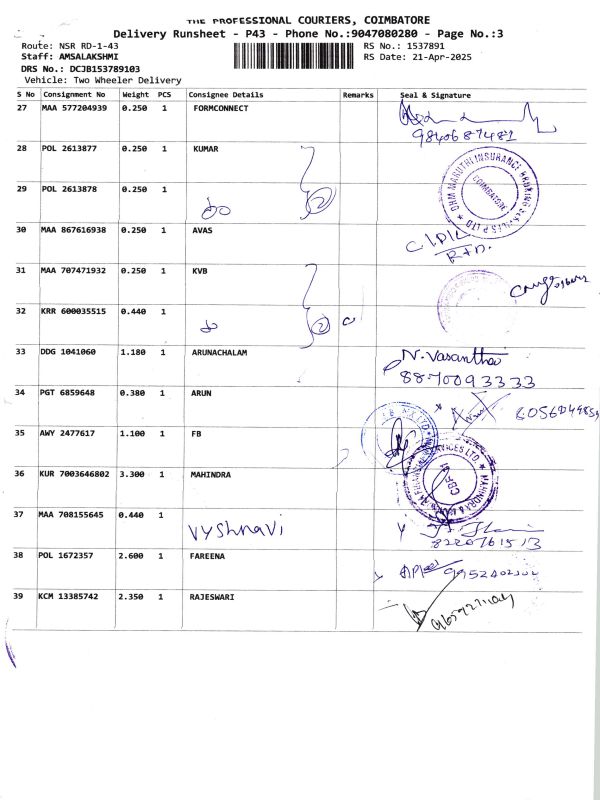 THE PROFESSIONAL COURIERS, COIMBATORE
Delivery Runsheet - P43 - Phone No.:9047080280 - Page No.:3
Route: NSR RD-1-43
RS No.: 1537891
Staff: AMSALAKSHMI
RS Date: 21-Apr-2025
DRS No.: DCJB153789103
Vehicle: Two Wheeler Delivery
S No Consignment No Weight PCS Consignee Details Remarks Seal & Signature
27 MAA 577204939 0.250 1 FORMCONNECT
9840687481
28 POL 2613877 0.250 1 KUMAR
29 POL 2613878 0.250 1
2
DHM MARUTHI INSURANCE BROKING SERVICES P LTD
COIMBATORE
30 MAA 867616938 0.250 1 AVAS
31 MAA 707471932 0.250 1 KVB
32 KRR 600035515 0.440 1
2
33 DDG 1041060 1.180 1 ARUNACHALAM N. Vasantha
8870093333
34 PGT 6859648 0.380 1 ARUN
35 AWY 2477617 1.100 1 FB
36 KUR 7003646802 3.300 1 MAHINDRA
37 MAA 708155645 0.440 1
vyshnavi
8220761513
38 POL 1672357 2.600 1 FAREENA
39 KCM 13385742 2.350 1 RAJESWARI